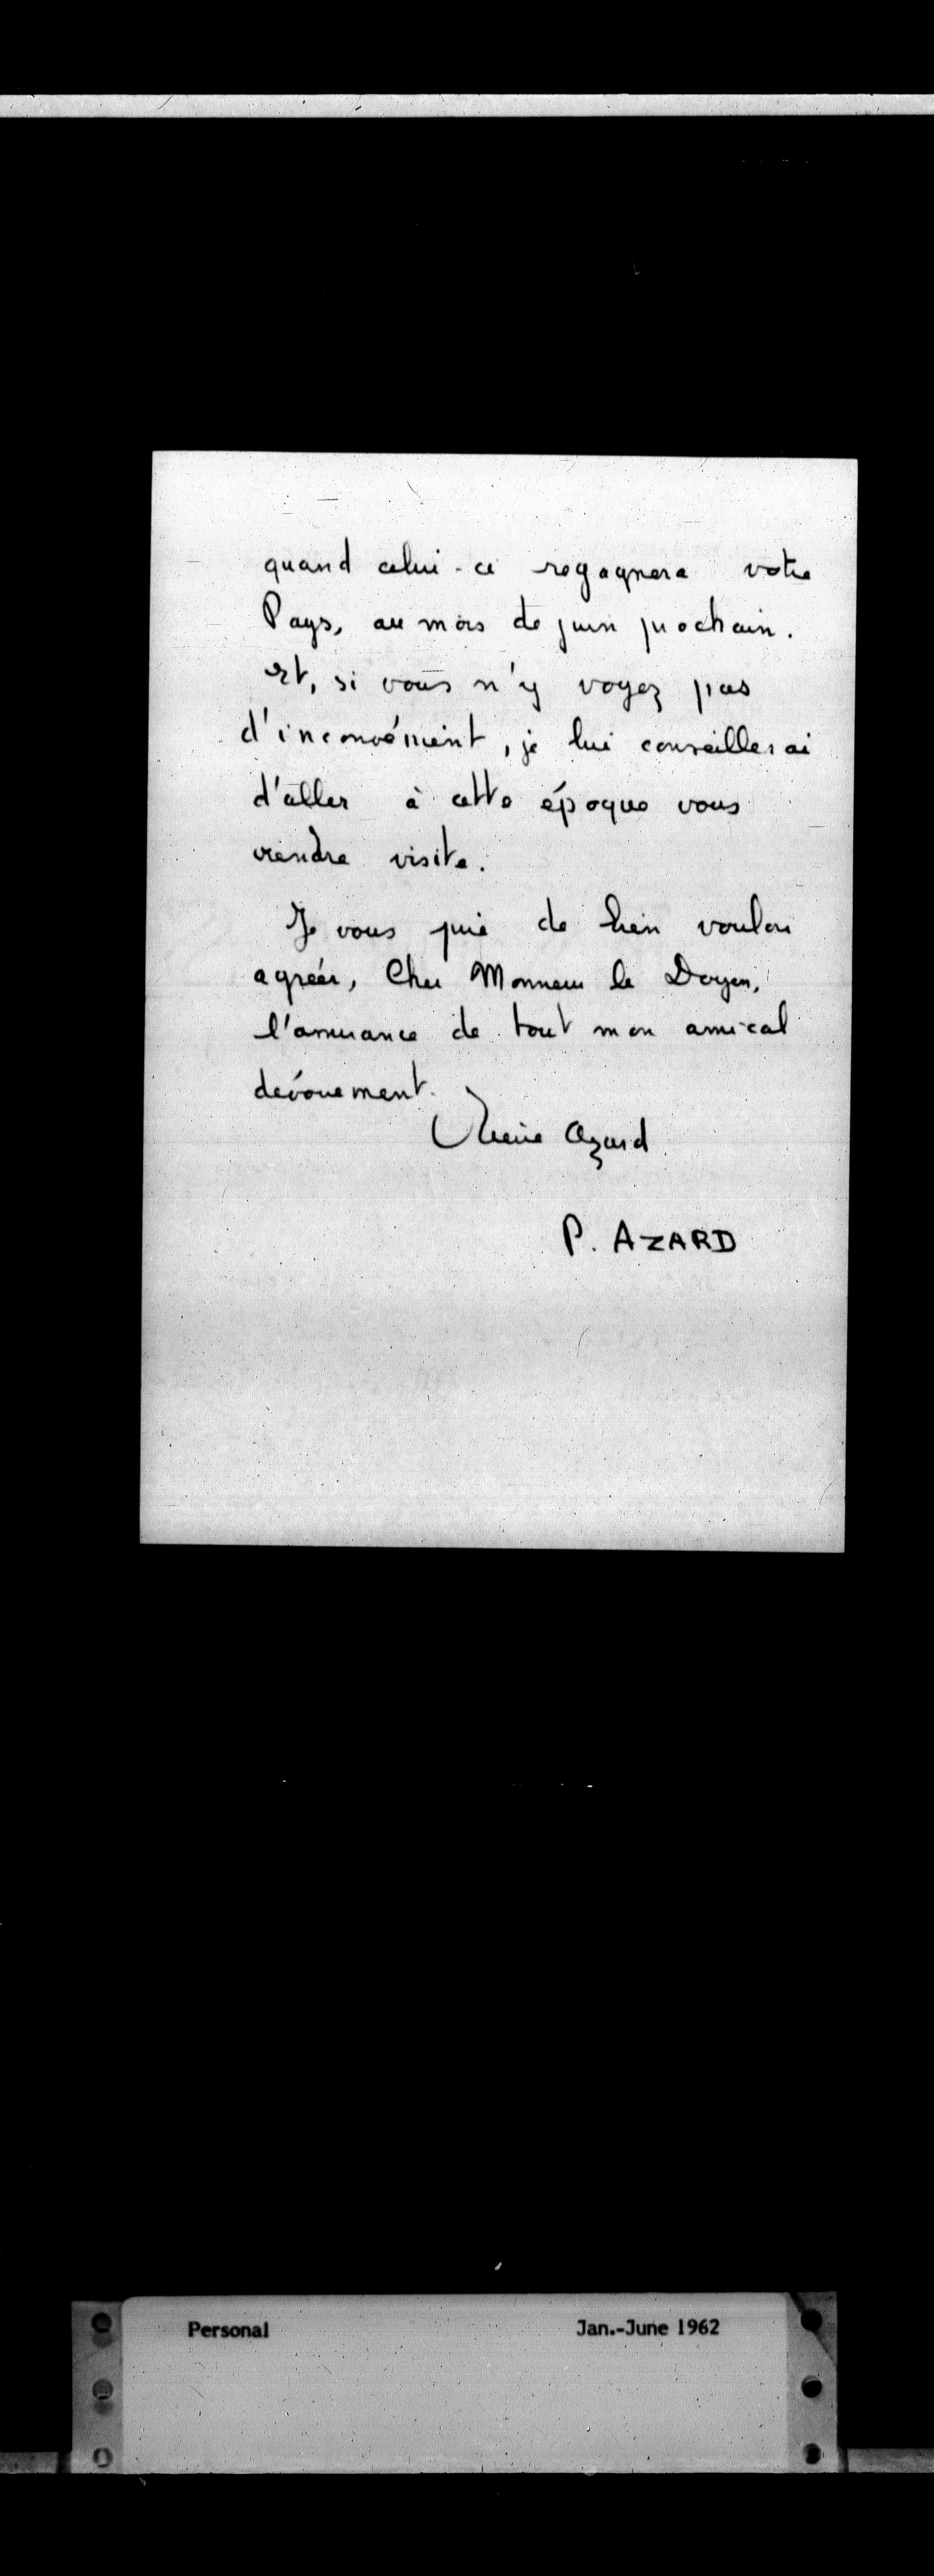 quand celui-ci regagnera votre
Pays, au mois de juin prochain.
Et, si vous n'y voyez pas
d'inconvénient, je lui conseillerai
d'aller à cette époque vous
rendre visite.
Je vous prie de bien vouloir
agréer, Cher Monsieur le Doyen,
l'assurance de tout mon amical
dévouement.
Azard
P. AZARD
Personal Jan.-June 1962